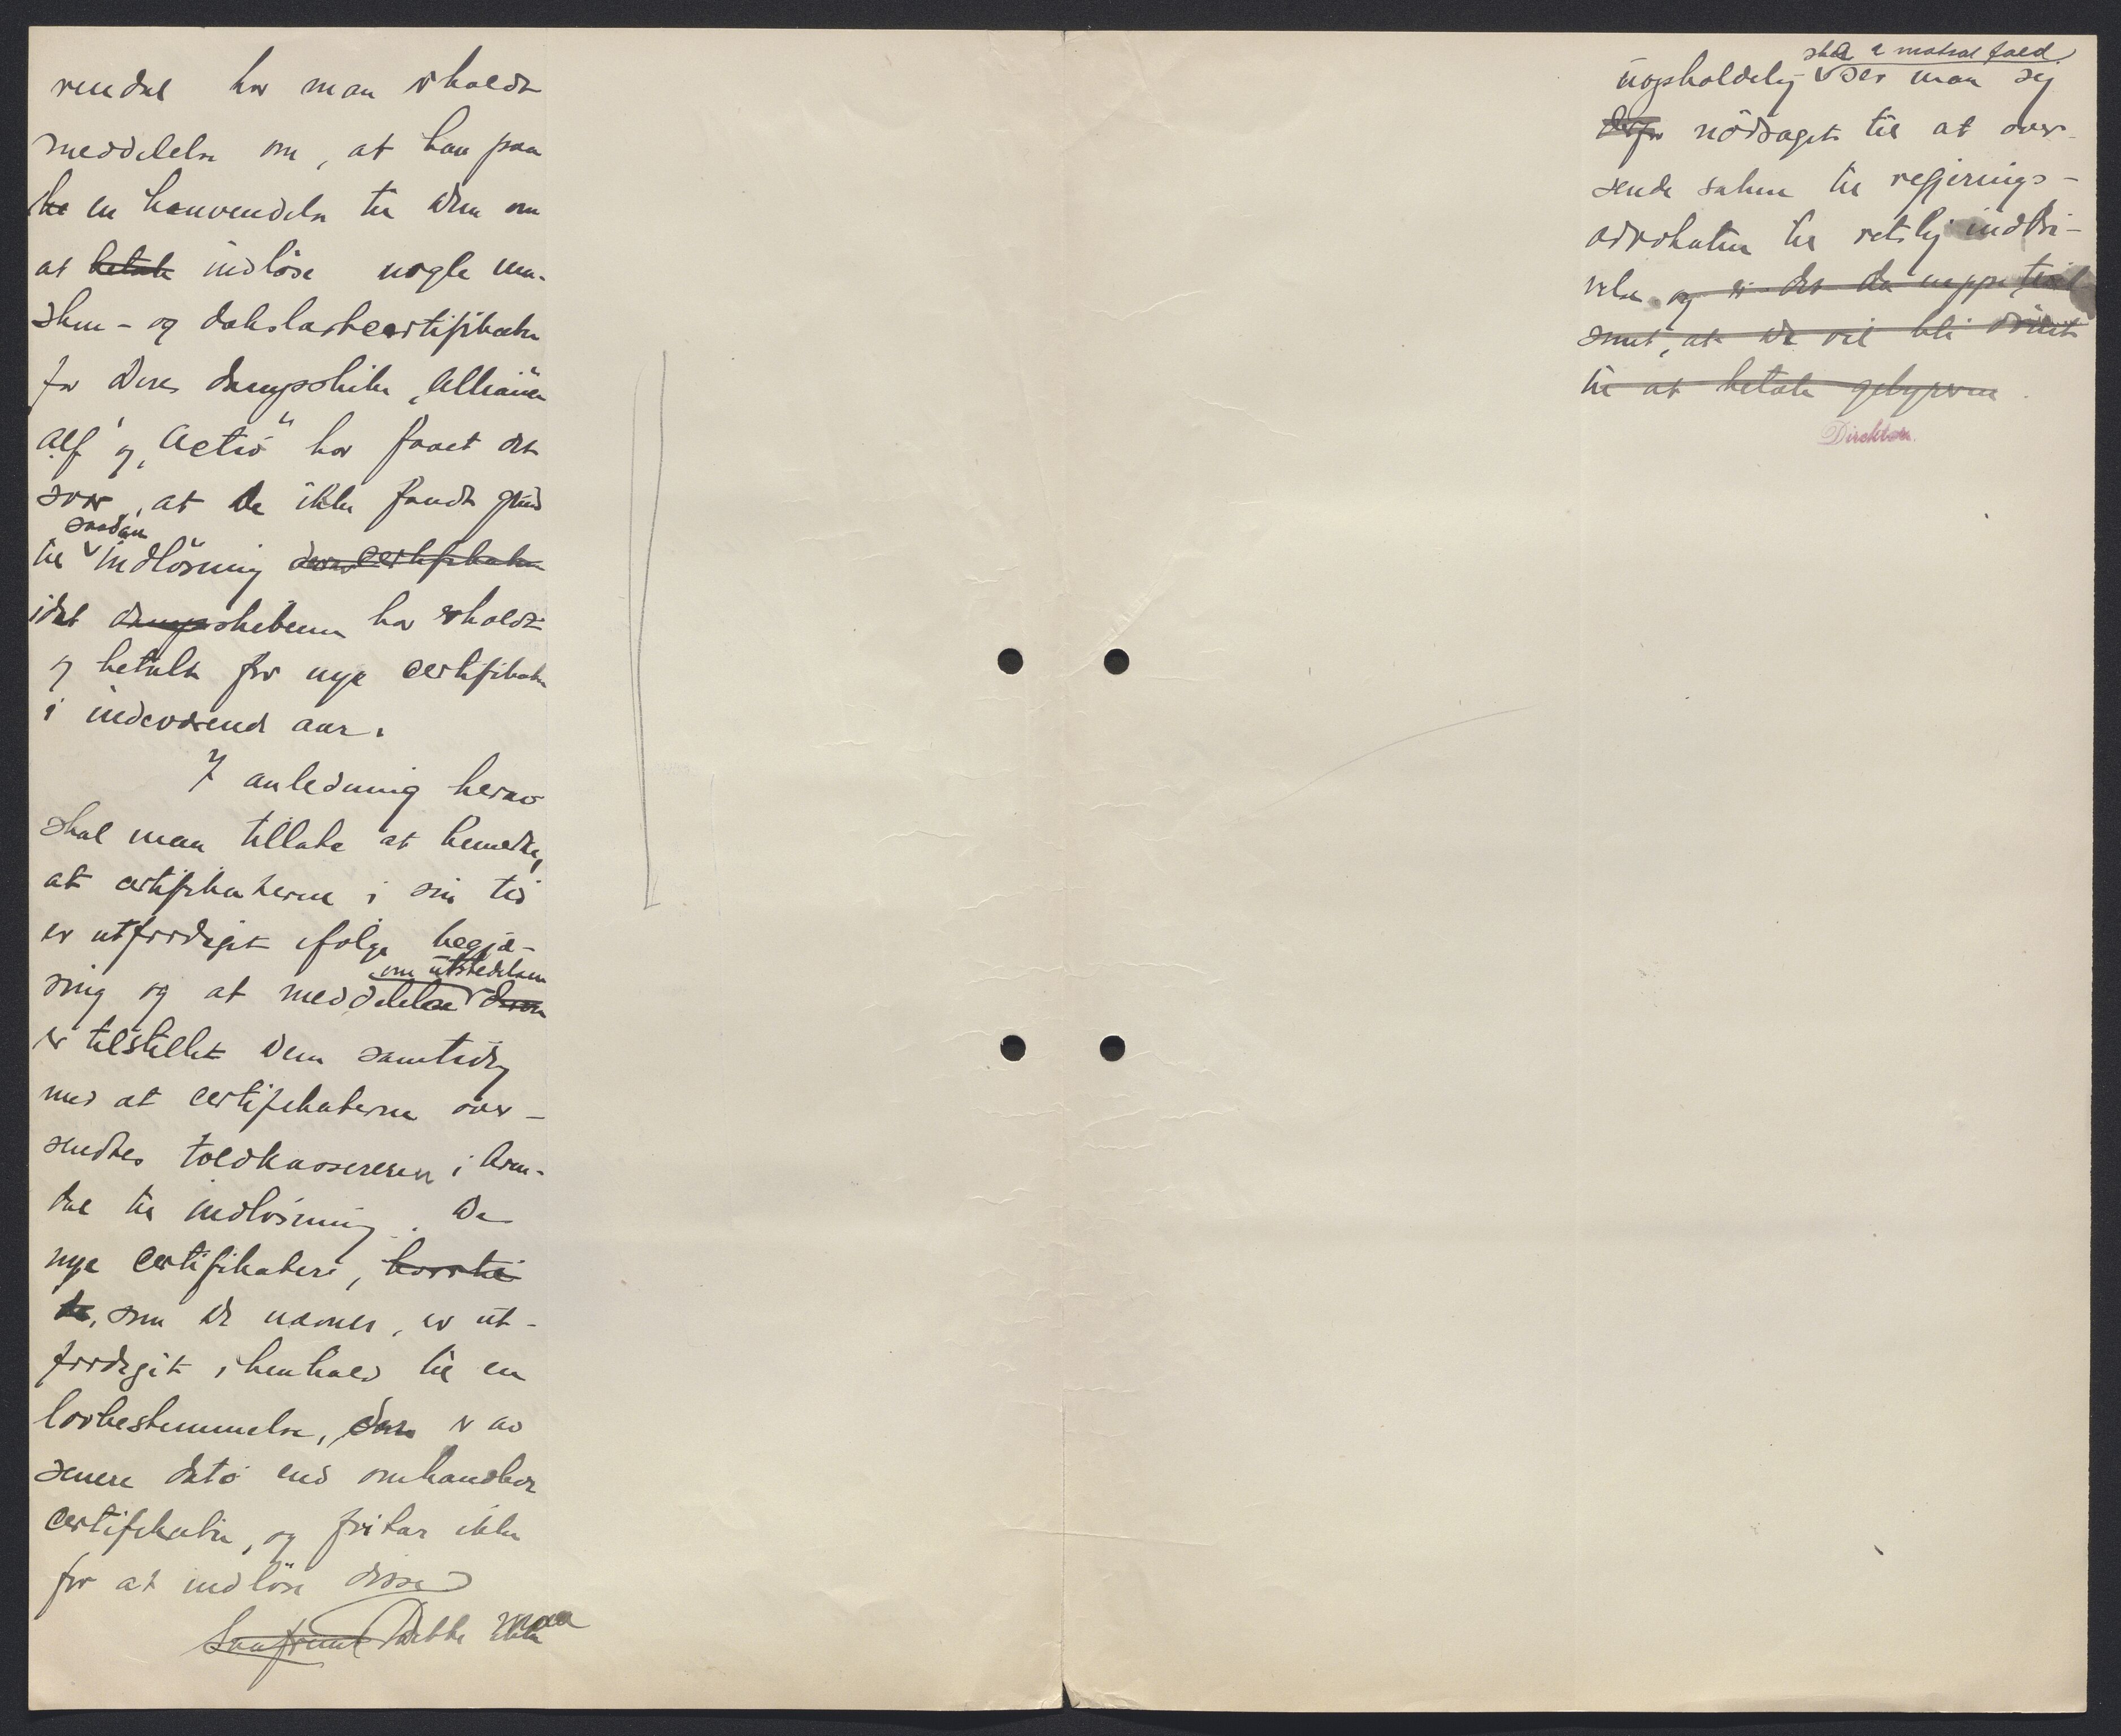 rendal har man erholdt
meddelelse om, at han paa
ha en henvendelse til Dem om
at betale indløse nogle ma-
skin- og dækslastcertifikater
for Deres dampskibe „Alliance"
Alf" og „Activ" har faaet det
svar, at De ikke fandt grund
saadan
til indløsning deres certifikater
idet dampskibene har erholdt
og betalt for nye certifikater
i indeværende aar.
I anledning herav
skal man tillate at bemerke,
at certifikaterne i sin tid
er utfærdiget ifølge begjæ-
om utstedelsen
ring og at meddelelse
er tilstillet Dem samtidig
med at certifikaterne over-
sendtes toldkassereren i Aren-
dal til indløsning. De
nye certifikater,
de, som De nævner, er ut-
færdiget i henhold til en
lovbestemmelse, er av
senere dato end omhandlede
certifikater, og fritar ikke
for at indløse disse
Dette maa
skal i motsat fald
uopholdelig ser man sig
derfor nødsaget til at over-
sende saken til regjerings-
advokaten til retslig inddri-
velse og er det da neppe tvil-
somt, at De vil bli dømt
til at betale gebyrerne.
Direktør.